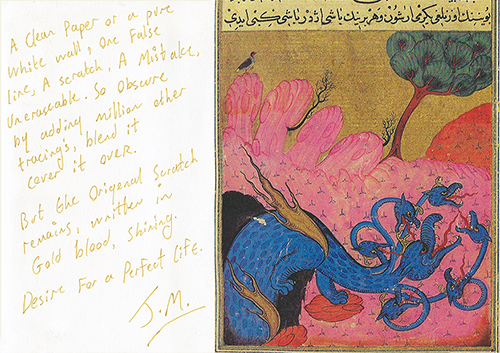 A Clean Paper or a pure
White wall; One False
line, A scratch, A Mistake,
Uneraseable. So Obscure
by adding million other
tracings, blend it
cover it over.
But the Origenal Scratch
remains, written in
Gold blood, shining.
Desire For a Perfect Life.
J.M.
اوزنلغی یكرمی ارشون وهر برینك باشی اژدر باشی كبی ایدی